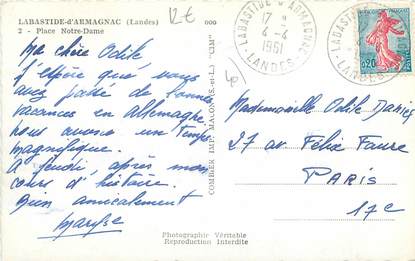 LABASTIDE-d'ARMAGNAC (Landes)
2 - Place Notre-Dame
12€
000
Ma chère Odile
J'espère que vous
avez passé de bonnes
vacances en Allemagne.
nous avons un temps
magnifique.
A jeudi, après mon
cours d'histoire.
Bien amicalement
Maryse
COMBIER IMP. MACON (S.-et-L.) "CIM"
LABASTIDE D'ARMAGNAC
17 H
4-4
1961
LANDES
LABASTIDE D'
LANDES
0,20
POSTES
Mademoiselle Odile
27 av Félix Faure
PARIS
17e
Photographie Véritable
Reproduction Interdite